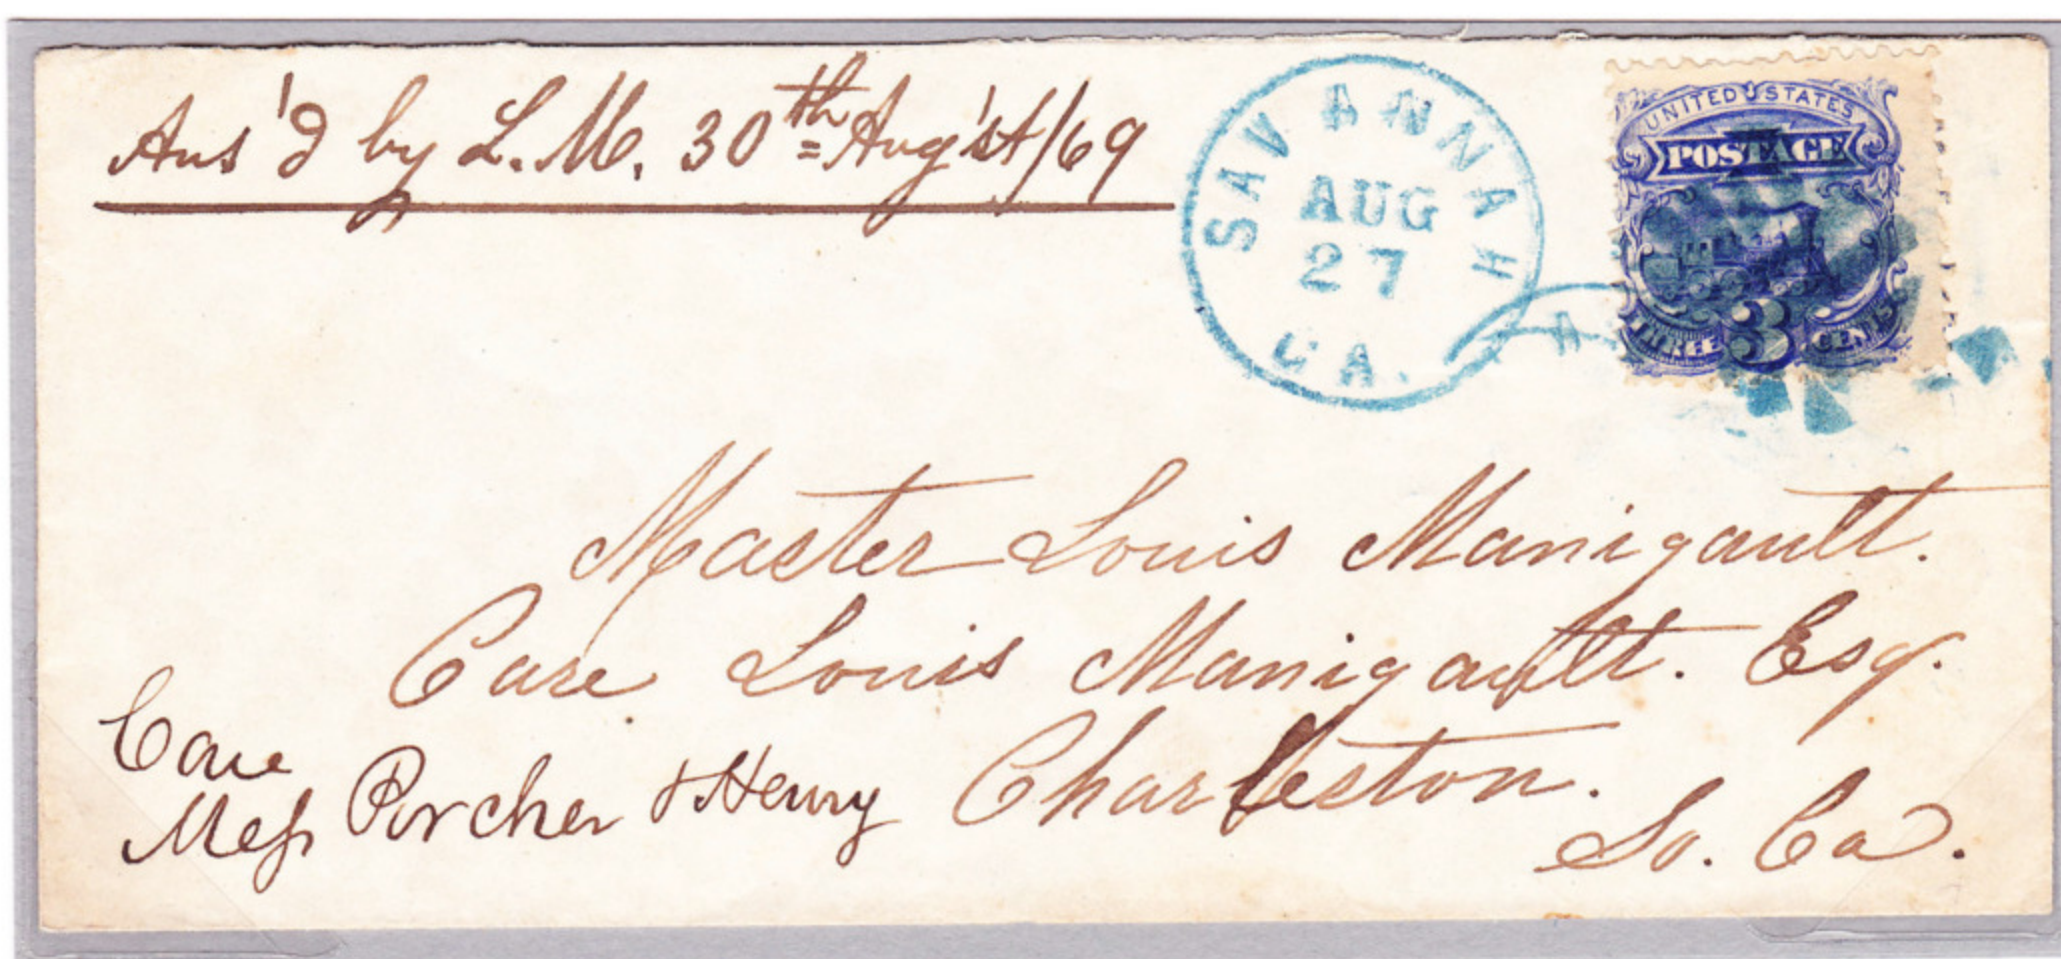 Ans'd by L. M. 30th Aug'st/69
SAVANNAH
AUG
27
GA.
UNITED STATES
POSTAGE
THREE 3 CENTS
Master Louis Manigault.
Care Louis Manigault. Esq.
Charleston.
So. Ca.
Care
Mess Porcher & Henry